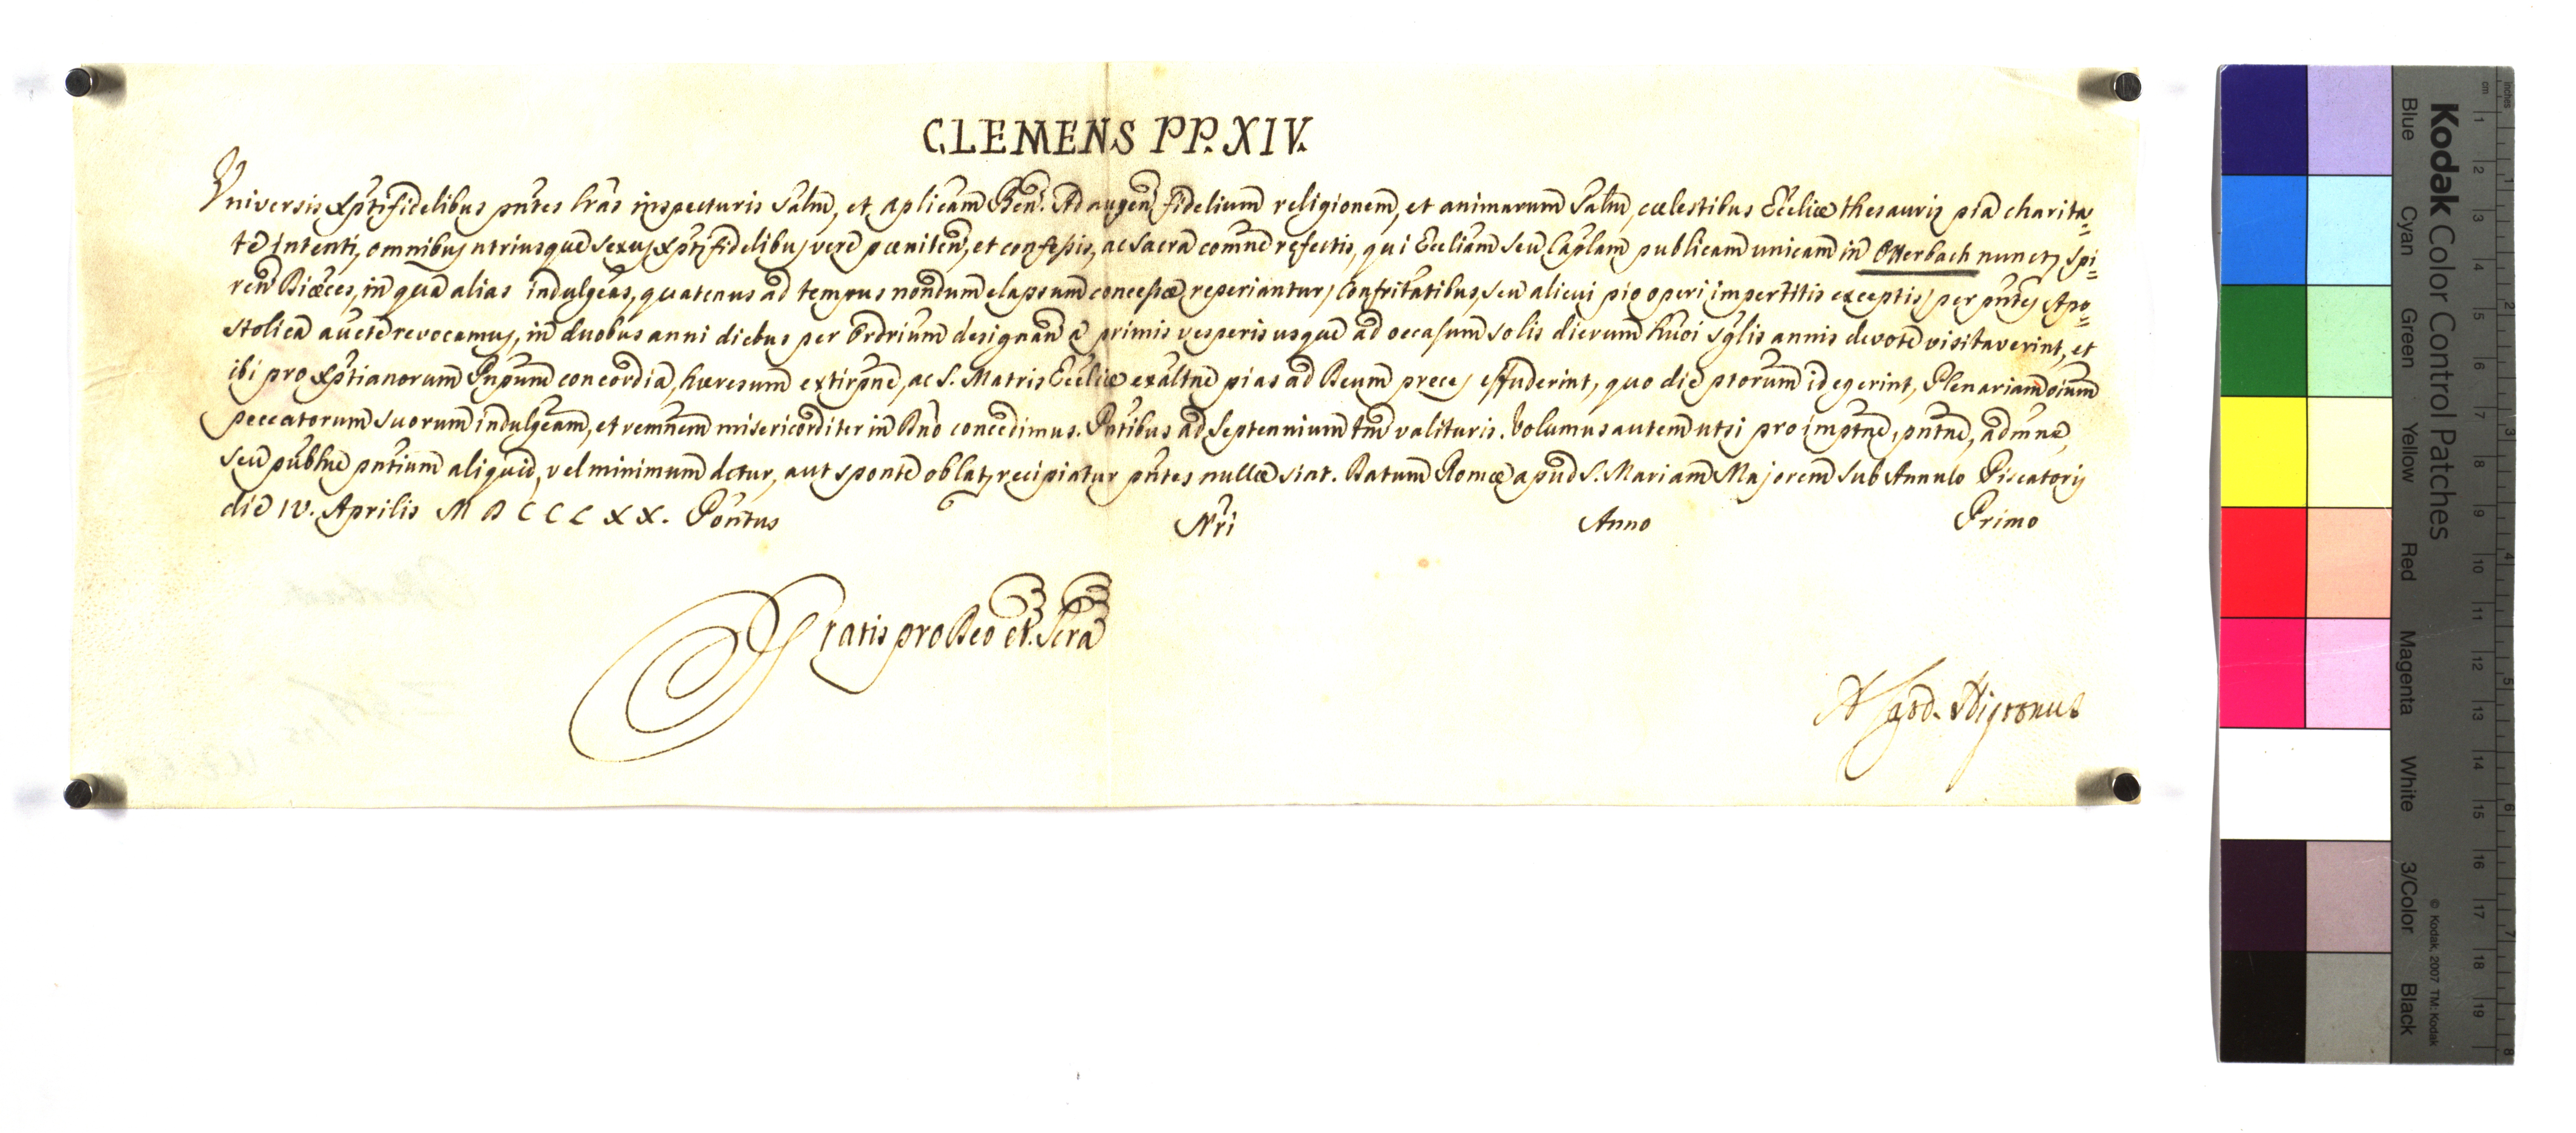 CLEMENS PP. XIV.
Universis Xpti fidelibus pntes lras inspecturis Saltm, et aplicam Ben. Ad augen fidelium religionem, et animarum Saltm, cœlestibus Ecclie thesauris pia charita=
te intenti, omnibus utriusque sexus Xpti fidelibus vere pœniten, et confessis, ac Sacra comne refectis, qui Eccliam seu Caplam publicam unicam in Otterbach nuncp, Spi=
ren Diœces, in qua alias indulgeas, quatenus ad tempus nondum elapsum concessæ reperiantur, Confritatibus, seu alicui pio operi impertitis exceptis, per pntes Apo=
stolica aucte revocamus, in duobus anni diebus per Ordrium designan a primis vesperis usque ad occasum solis dierum hmoi sglis annis devote visitaverint, et
ibi pro Xptianorum Pnpum concordia, hæresum extirpne, ac S. Matris Eccliæ exaltne pias ad Deum preces effuderint, quo die ptorum id egerint, Plenariam oium
peccatorum suorum indulgeam, et remnem misericorditer in Dno concedimus. Pntibus ad Septennium tm valituris. Volumus autem ut si pro imptne, pntne, admne,
seu publne pntium aliquid, vel minimum detur, aut sponte oblat, recipiatur pntes nullæ sint. Datum Romæ apud S. Mariam Majorem Sub Annulo Piscatoris
die IV. Aprilis MDCCLXX. Pontus Nri Anno Primo
Gratis pro Deo et Scra